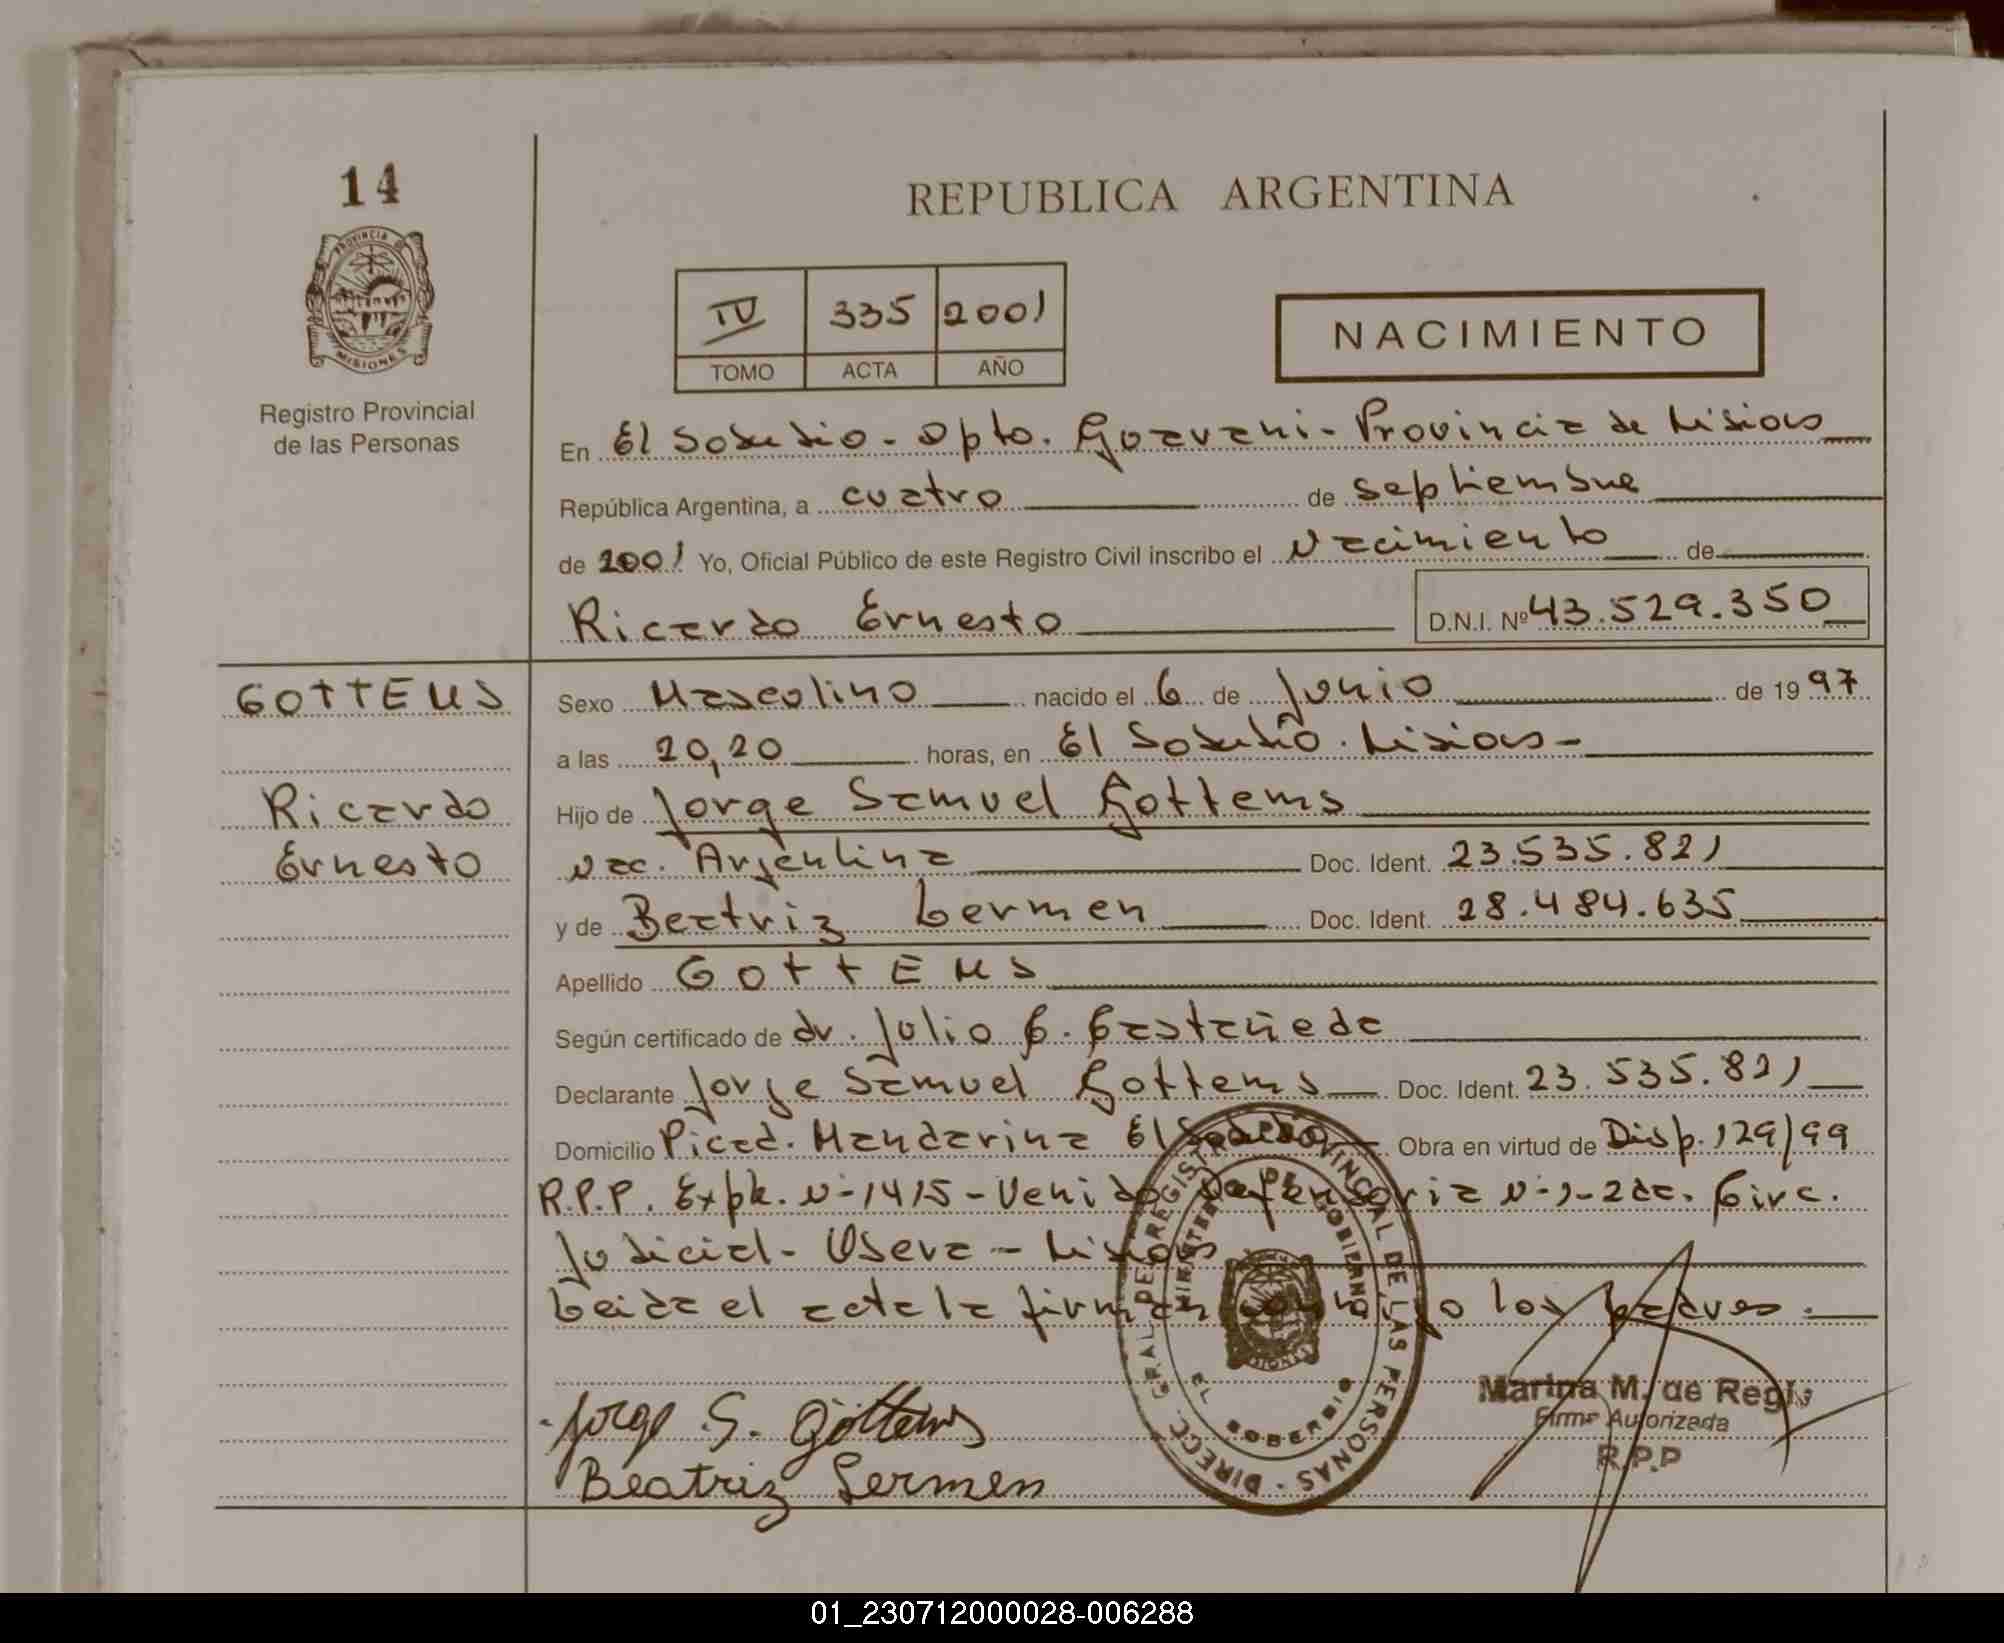 14
PROVINCIA DE
MISIONES
Registro Provincial
de las Personas
REPUBLICA ARGENTINA
IV 335 2001
TOMO ACTA AÑO
NACIMIENTO
En El Soberbio - Dpto. Guarani - Provincia de Misiones
República Argentina, a cuatro de septiembre
de 2001 Yo, Oficial Público de este Registro Civil inscribo el Nacimiento de
Ricardo Ernesto D.N.I. Nº 43.529.350
GOTTEMS
Ricardo
Ernesto
Sexo Masculino nacido el 6 de Junio de 19 97
a las 20,20 horas, en El Soberbio. Misiones -
Hijo de Jorge Samuel Gottems
Nac. Argentina Doc. Ident. 23.535.821
y de Beatriz Lermen Doc. Ident. 28.484.635
Apellido GOTTEMS
Según certificado de dr. Julio C. Castañeda
Declarante Jorge Samuel Gottems Doc. Ident. 23.535.821
Domicilio Picad. Mandarina El Soberbio Obra en virtud de Disp. 129/99
R.P.P. Expte. N-1415 - Venido Defensoria N-1-2da. Circ.
Judicial - Obera - Misiones
Leida el acta la firman conmigo los padres.
Jorge S. Gottems
Beatriz Lermen
DIRECC. GRAL. DEL REGISTRO PROVINCIAL DE LAS PERSONAS
MINISTERIO DE GOBIERNO
MISIONES
EL SOBERBIO
Marina M. de Regis
Firma Autorizada
R.P.P
01_230712000028-006288